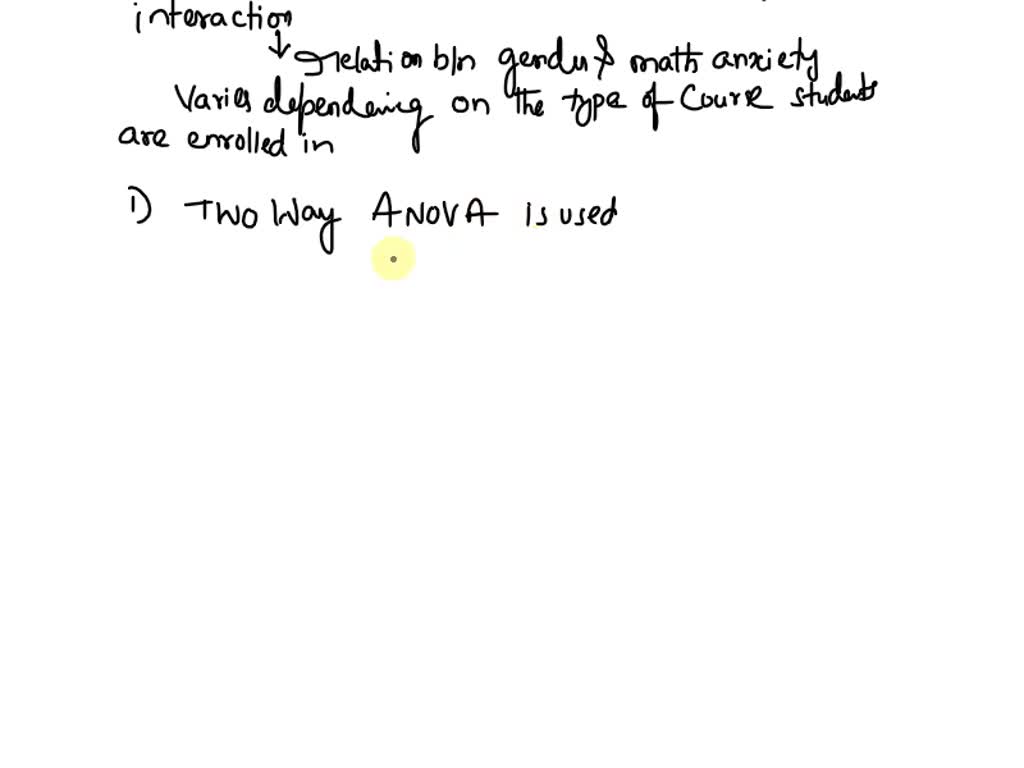 interaction
relation b/n gender & math anxiety
Varies dependeing on the type of Course students
are enrolled in
1) Two Way ANOVA is used